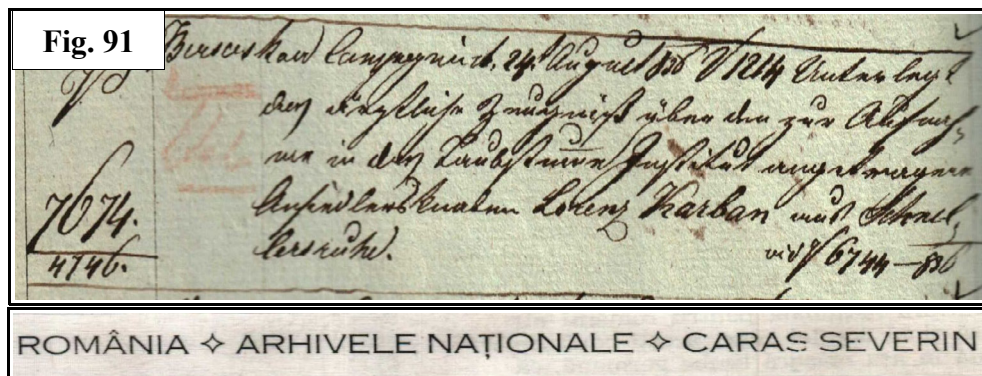 Fig. 91
Berseska Compagnie, 24t August 836 N 1214 Unterlegt
das ärztliche Zeugniß über den zur Aufnah-
me in das Taubstumme Institut angetragenen
7674. Ansiedlersknaben Lorenz Karban aus Schnel-
4746. lersruhe. vid N 6744–836
ROMÂNIA ✧ ARHIVELE NAȚIONALE ✧ CARAS SEVERIN